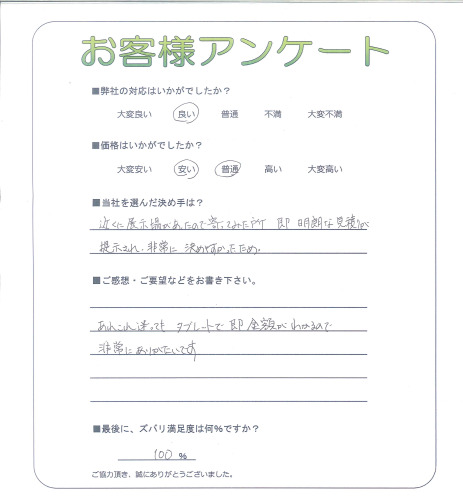 お客様アンケート
■弊社の対応はいかがでしたか？
大変良い 良い 普通 不満 大変不満
■価格はいかがでしたか？
大変安い 安い 普通 高い 大変高い
■当社を選んだ決め手は？
近くに展示場があたので寄ってみたら所 即 明朗な見積りが
提示され、非常に 決めやすかったため。
■ご感想・ご要望などをお書き下さい。
あれこれ迷っても タブレートで即金額がわかるので
非常にありがたいです
■最後に、ズバリ満足度は何％ですか？
100 %
ご協力頂き、誠にありがとうございました。